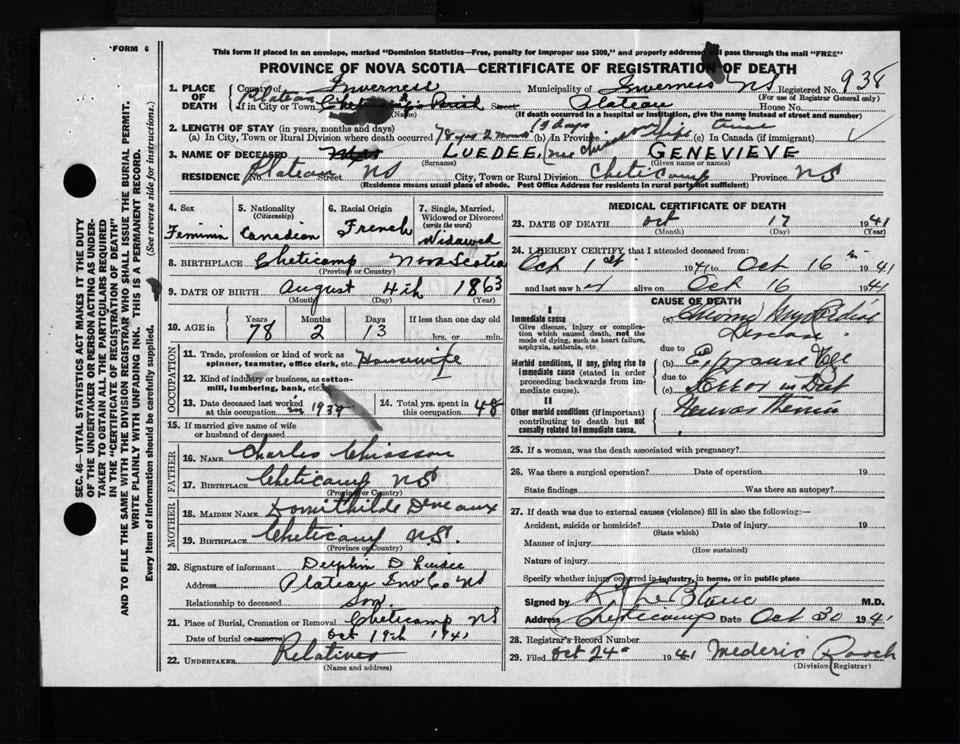 FORM 6
This form if placed in an envelope, marked "Dominion Statistics—Free, penalty for improper use $300," and properly addressed will pass through the mail "FREE"
PROVINCE OF NOVA SCOTIA—CERTIFICATE OF REGISTRATION OF DEATH
938
1. PLACE OF DEATH County of Inverness Municipality of Inverness NS Registered No.
(For use of Registrar General only)
Plateau If in City or Town Street Plateau House No.
(Name) (If death occurred in a hospital or institution, give its name instead of street and number)
2. LENGTH OF STAY (in years, months and days)
(a) In City, Town or Rural Division where death occurred 78 yrs 2 mons 13 days (b) In Province (c) In Canada (if immigrant)
3. NAME OF DECEASED LUEDEE, GENEVIEVE
(Surname) (Given name or names)
RESIDENCE No. Plateau Street NS City, Town or Rural Division Cheticamp Province NS
(Residence means usual place of abode. Post Office Address for residents in rural parts not sufficient)
4. Sex Feminin
5. Nationality (Citizenship) Canadian
6. Racial Origin French
7. Single, Married, Widowed or Divorced (write the word) Widowed
8. BIRTHPLACE Cheticamp Nova Scotia
(Province or Country)
9. DATE OF BIRTH August 4th 1863
(Month) (Day) (Year)
10. AGE in Years Months Days If less than one day old
78 2 13 hrs. or min.
OCCUPATION
11. Trade, profession or kind of work as spinner, teamster, office clerk, etc. Housewife
12. Kind of industry or business, as cotton-mill, lumbering, bank, etc.
13. Date deceased last worked at this occupation in 1939
14. Total yrs. spent in this occupation 48
15. If married give name of wife or husband of deceased
FATHER
16. NAME Charles Chiasson
17. BIRTHPLACE Cheticamp NS
(Province or Country)
MOTHER
18. MAIDEN NAME Domithilde Deveaux
19. BIRTHPLACE Cheticamp N.S.
(Province or Country)
20. Signature of informant Delphin D Luedee
Address Plateau Inv Co NS
Relationship to deceased Son
21. Place of Burial, Cremation or Removal Cheticamp NS
Date of burial or removal Oct 19th 1941
22. UNDERTAKER Relatives
(Name and address)
MEDICAL CERTIFICATE OF DEATH
23. DATE OF DEATH Oct 17 1941
(Month) (Day) (Year)
24. I HEREBY CERTIFY that I attended deceased from:
Oct 1st 1941 to Oct 16 1941
and last saw her alive on Oct 16 1941
CAUSE OF DEATH
I
Immediate cause
Give disease, injury or complication which caused death, not the mode of dying, such as heart failure, asphyxia, asthenia, etc.
(a) Chronic Myocardial
due to
Morbid conditions, if any, giving rise to immediate cause (stated in order proceeding backwards from immediate cause).
(b) Exposure
due to
(c) Error in Diet
II
Other morbid conditions (if important) contributing to death but not causally related to immediate cause.
25. If a woman, was the death associated with pregnancy?
26. Was there a surgical operation? Date of operation 19
State findings Was there an autopsy?
27. If death was due to external causes (violence) fill in also the following:—
Accident, suicide or homicide? Date of injury 19
(State which)
Manner of injury
(How sustained)
Nature of injury
Specify whether injury occurred in industry, in home, or in public place
Signed by LeBlanc M.D.
Address Cheticamp Date Oct 30 1941
28. Registrar's Record Number
29. Filed Oct 24 1941 Mederic Roach
(Division Registrar)
SEC. 46—VITAL STATISTICS ACT MAKES IT THE DUTY
OF THE UNDERTAKER OR PERSON ACTING AS UNDERTAKER TO OBTAIN ALL THE PARTICULARS REQUIRED
IN THE "CERTIFICATE OF REGISTRATION OF DEATH" AND TO FILE THE SAME WITH THE DIVISION REGISTRAR WHO SHALL ISSUE THE BURIAL PERMIT.
WRITE PLAINLY WITH UNFADING INK. THIS IS A PERMANENT RECORD.
Every item of information should be carefully supplied. (See reverse side for instructions.)